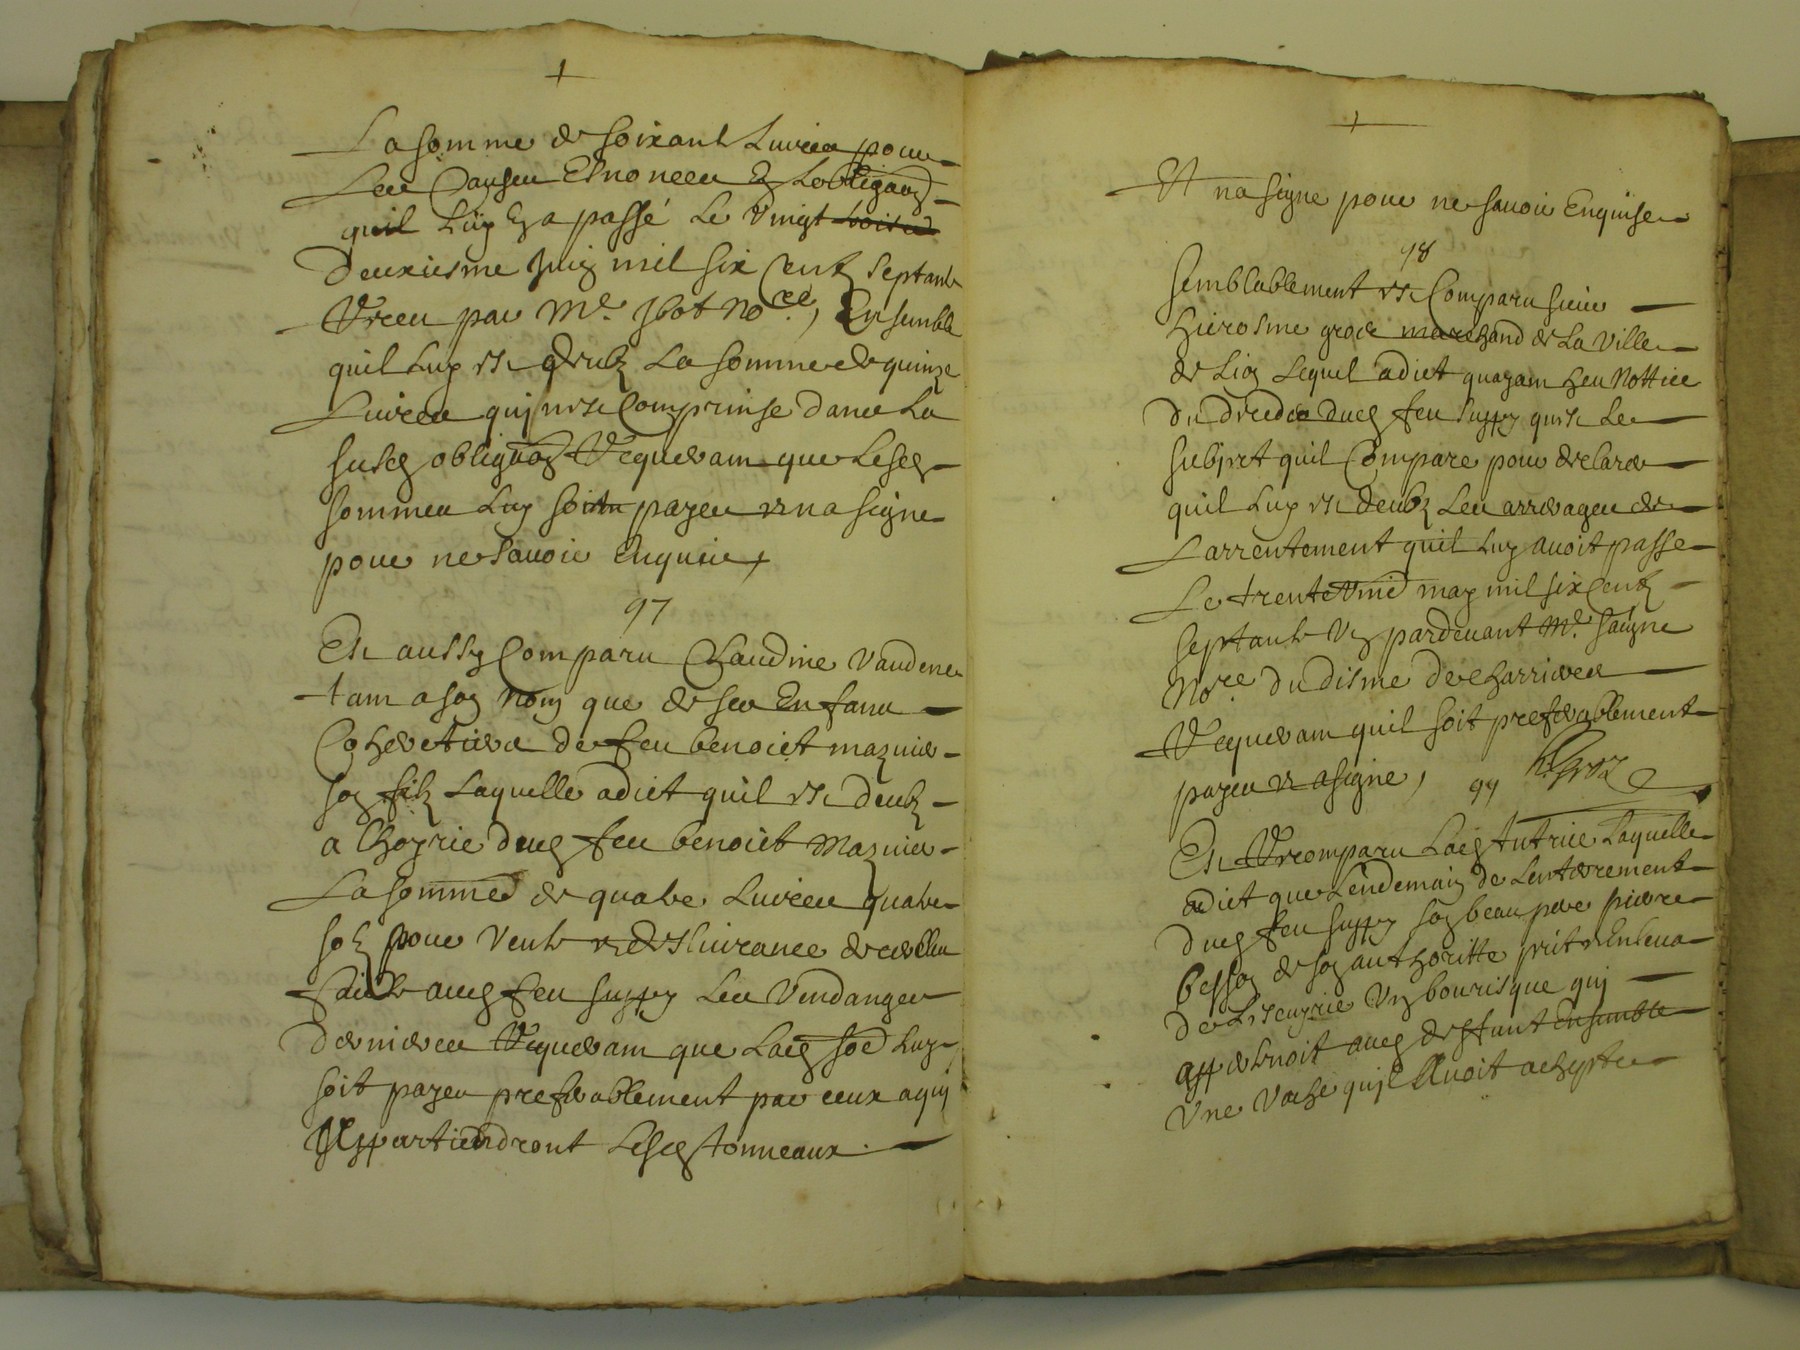 La somme de soixante Livres pour
Les Causes Enoncees En Lobligaõn
quil Luy En a passé Le vingt
deuxiesme Juin mil six Centz septante
Receu par Me. Not.re, Ensemble
quil Luy est deubz La somme de quinze
Livres quj nest Comprinse dans La
susd obligaõn Requerant que Lesd
sommes Luy soitn payes et na signe
pour ne savoir Enquis,
97
Est aussy Comparu Claudine vandene
tant a son nom que de ses Enfans
Coheretiers de feu benoict maznier
son filz Laquelle a dict quil est deubz
a L'hoyrie dud feu benoict Maznier
La somme de quatre Livres quatre
solz pour vente et deslivrance
faicte aud feu suppy Les Vendanges
dernieres Requerant que Lad soê Luy
soit payes preferablement par ceux aquj
Appartiendront Lesd tonneaux.
Et na signe pour ne savoir Enquise
98
semblablement est Comparu sieur
hierosme groz marchand de La Ville
de Lion Lequel a dict quayant heu Nottice
du decedes dud feu suppy quest Le
subject quil Compare pour declarer
quil Luy est deubz Les arrerages de
Larrentement quil Luy avoit passe
Le trente may mil six Centz
septante Un pardevant Me. saigne
No.re du disme de charrieres
Requerant quil soit preferablement
payes et a signe, hgroz
99
Est Recomparu Lad tutrice Laquelle
a dict que Lendemain de Lenterrement
dud feu suppy son beau pere pierre
besson de son authoritte prit et Enleva
de L'escuyrie Un bourisque quj
appertenoit aud deffunt Ensemble
Une Vache quil Avoit acheptee